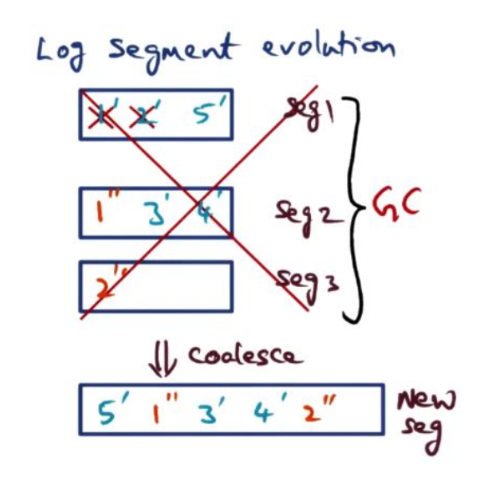 Log segment evolution
1' 2' 5' seg1
1" 3' 4' seg2
GC
2" seg3
⇓ coalesce
5' 1" 3' 4' 2" New
seg